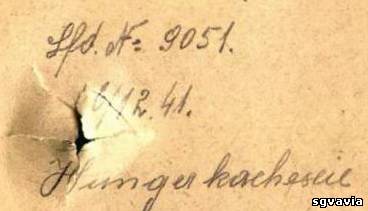 Lfd. № 9051.
9/12.41.
Hungerkachexie
sgvavia